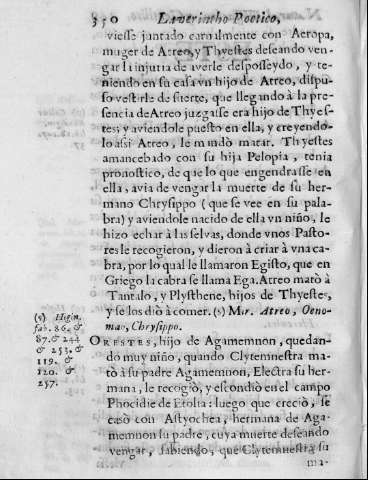 350 Laverintho Poetico,
viesse juntado carnalmente con Aeropa,
muger de Atreo, y Thyestes deseando ven-
gar la injuria de averle desposseydo, y te-
niendo en su casa vn hijo de Atreo, dispu-
so vestirle de suerte, que llegando à la pre-
sencia de Atreo juzgasse era hijo de Thyes-
tes; y aviendole puesto en ella, y creyendo-
lo assi Atreo, le mandò matar. Thyestes
amancebado con su hija Pelopia, tenia
pronostico, de que lo que engendrasse en
ella, avia de vengar la muerte de su her-
mano Chrysippo (que se vee en su pala-
bra) y aviendole nacido de ella vn niño, le
hizo echar à las selvas, donde vnos Pasto-
res le recogieron, y dieron à criar à vna ca-
bra, por lo qual le llamaron Egisto, que en
Griego la cabra se llama Ega. Atreo matò à
Tantalo, y Plysthene, hijos de Thyestes,
y se los diò à comer. (5) Mir. Atreo, Oeno-
mao, Chrysippo.
(5) Higin.
fab. 86. &
87. & 244
& 253. &
119. &
120. &
257.
ORESTES, hijo de Agamemnon, quedan-
do muy niño, quando Clytemnestra ma-
tò à su padre Agamemnon, Electra su her-
mana, le recogiò, y escondiò en el campo
Phocidie de Etolia: luego que creciò, se
casò con Astyochea, hermana de Aga-
memnon su padre, cuya muerte deseando
vengar, sabiendo, que Clytemnestra su
ma-